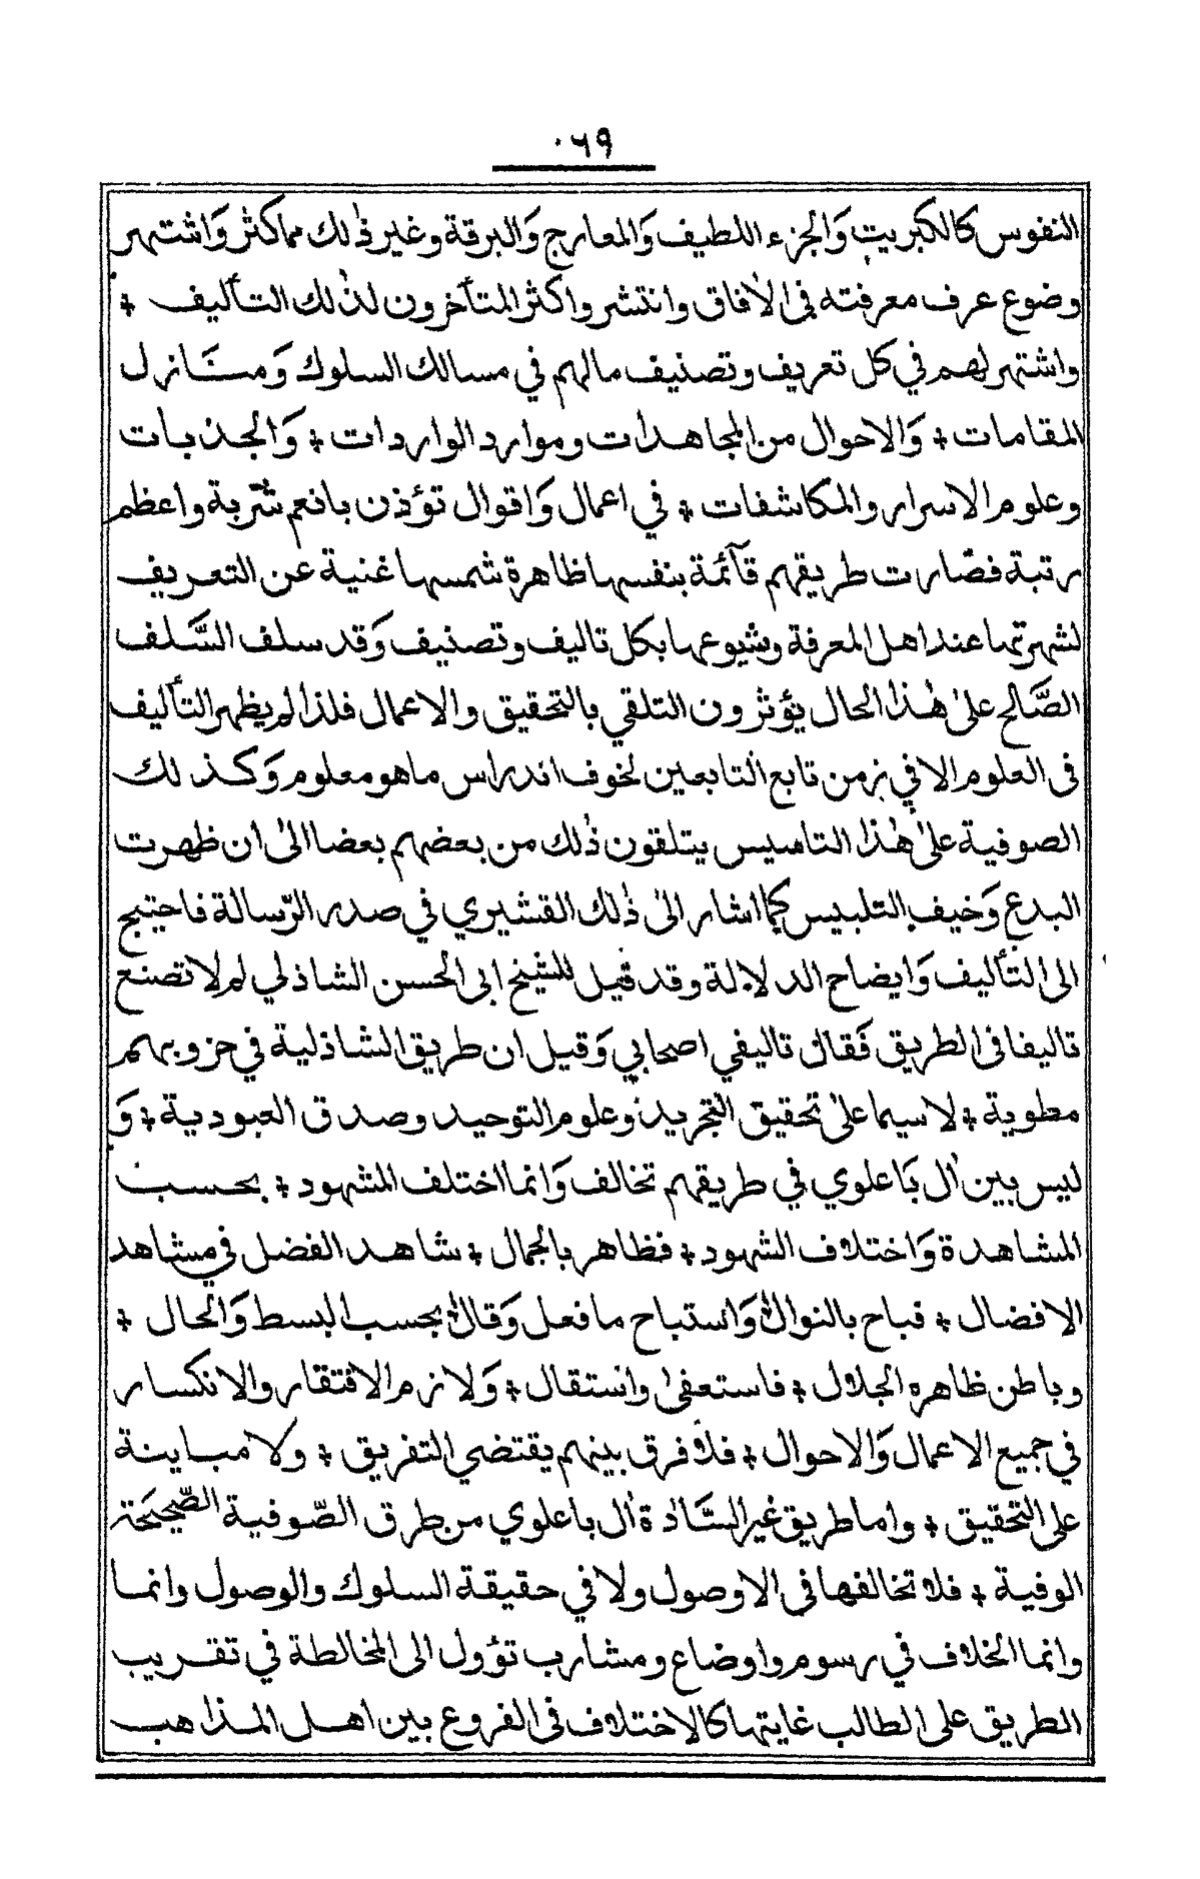 ٠٦٩
النفوس كالكبريت وَالجزء اللطيف وَالمعارج وَالبرقة وغير ذٰلك مماكثر وَاشتهر
وضوع عرف معرفته فى الاٰفاق وانتشر واكثر المتأخرون لذٰلك التأليف ✢
واشتهر لهم في كل تعريف وتصنيف مالهم في مسالك السلوك وَمنَازل
المقامات ✢ وَالاحوال من المجاهدات وموارد الواردات ✢ وَالجذبات
وعلوم الاسرار والمكاشفات ✢ في اعمال وَاقوال تؤذن بانعم شربة واعظم
رتبة فصارت طريقهم قآئمة بنفسها ظاهرة شمسها غنية عن التعريف
لشهرتها عند اهل المعرفة وشيوعها بكل تاليف وتصنيف وَقد سلف السَّلف
الصَّالح علىٰ هٰذا الحال يؤثرون التلقي بالتحقيق والاعمال فلذا لم يظهر التأليف
فى العلوم الا في زمن تابع التابعين لخوف اندراس ماهو معلوم وَكذلك
الصوفية علىٰ هٰذا التاسيس يتلقون ذٰلك من بعضهم بعضا الىٰ ان ظهرت
البدع وَخيف التلبيس كما اشار الىٰ ذٰلك القشيري في صدر الرّسالة فاحتيج
الى التأليف وَايضاح الدلالة وقد قيل للشيخ ابى الحسن الشاذلي لم لا تصنع
تاليفا فى الطريق فَقال تاليفي اصحابي وَقيل ان طريق الشاذلية في حزوبهم
مطوية ✢ لاسيما علىٰ تحقيق التجريد وعلوم التوحيد وصدق العبودية ✢ وَ
ليس بين اٰل بَاعلوي في طريقهم تخالف وَانما اختلف المشهود ✢ بحسب
المشاهدة وَاختلاف الشهود ✢ فظاهر بالجمال ✢ شاهد الفضل في مشاهد
الافضال ✢ فباح بالنوال وَاستباح ما فعل وَقال بحسب البسط وَالحال ✢
وباطن ظاهره الجلال ✢ فاستعفىٰ وانستقال ✢ وَلازم الافتقار والانكسار
في جميع الاعمال وَالاحوال ✢ فلا فرق بينهم يقتضي التفريق ✢ ولا مباينة
على التحقيق ✢ واما طريق غير السَّادة اٰل باعلوي من طرق الصّوفية الصّحيحَة
الوفية ✢ فلا تخالفها فى الاوصول ولا في حقيقة السلوك والوصول وانما
وانما الخلاف في رسوم واوضاع ومشارب تؤول الى المخالطة في تقريب
الطريق على الطالب غايتها كالاختلاف فى الفروع بين اهل المذاهب